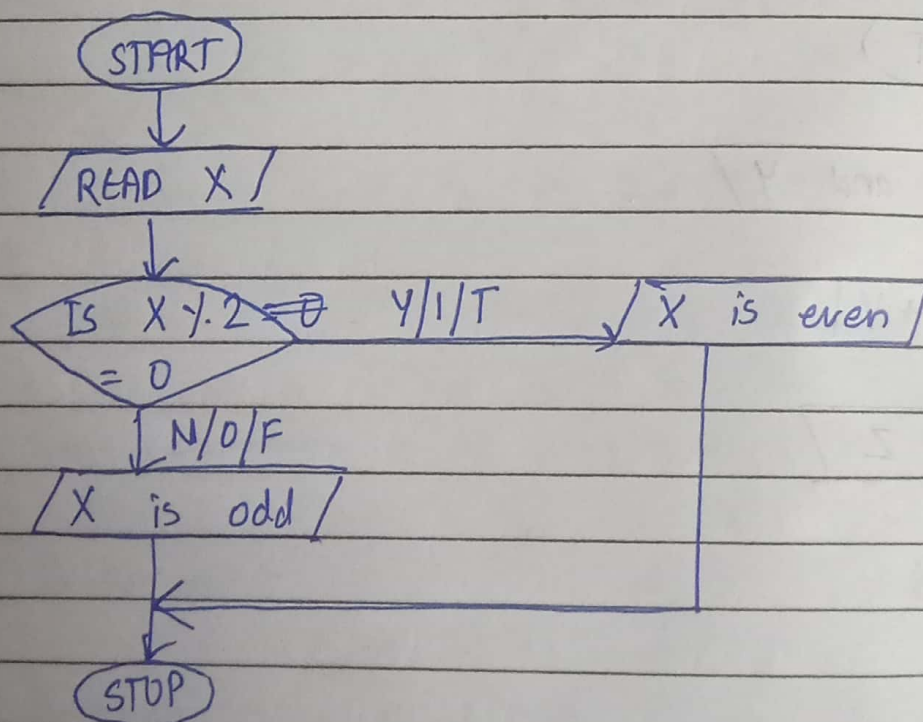 START
READ X
Is X %. 2
= 0
Y/1/T
X is even
N/0/F
X is odd
STOP